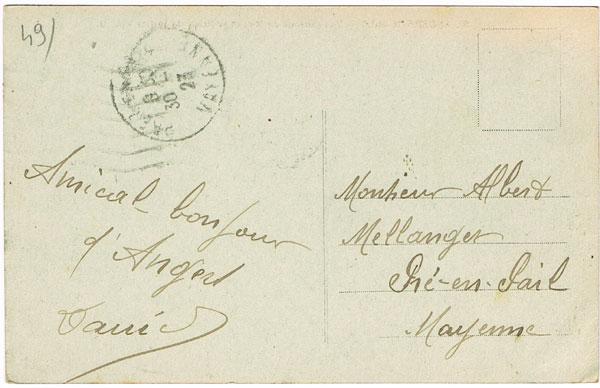 49)
MAYENNE
30
23
Amical bonjour
d'Angers
Monsieur Albert
Mellanger
Pré-en-Pail
Mayenne